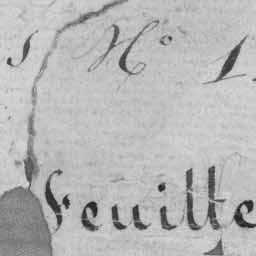 s No 1.
Feuille